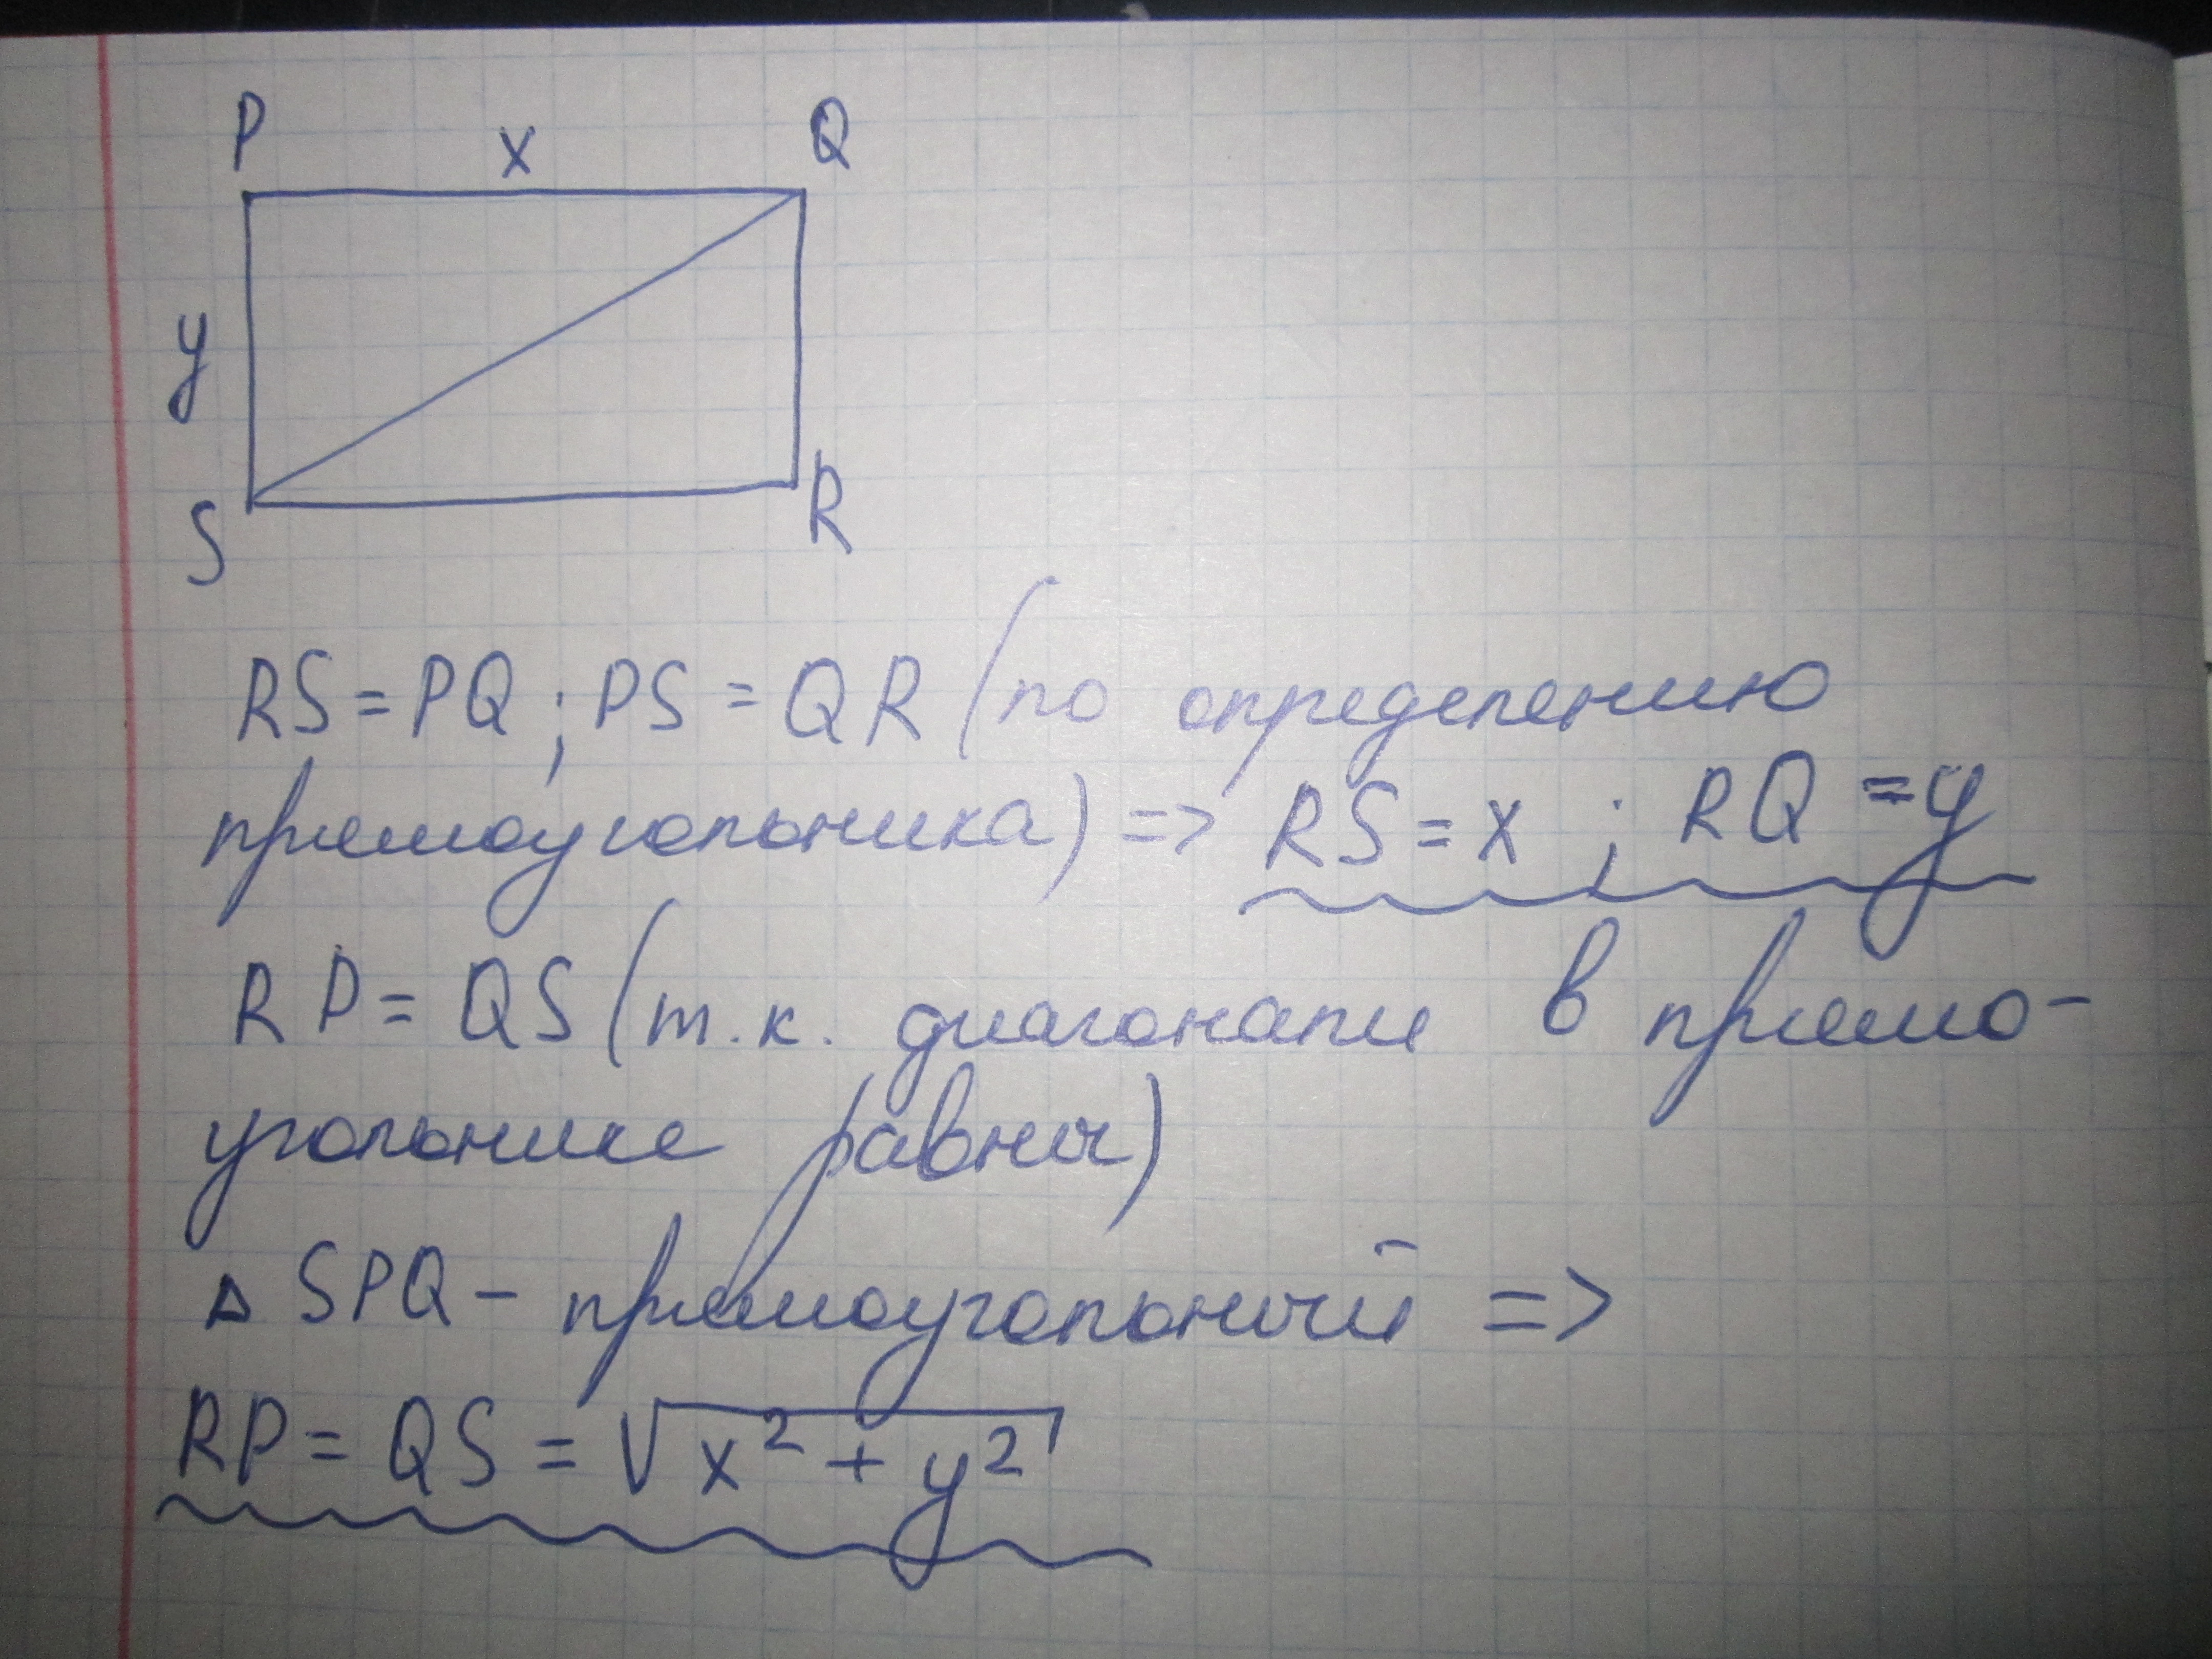 P x Q
y
S R
RS = PQ ; PS = QR (по определению
прямоугольника) => RS = x ; RQ = y
RP = QS (т.к. диагонали в прямо-
угольнике равны)
△ SPQ – прямоугольный =>
RP = QS = √x² + y²